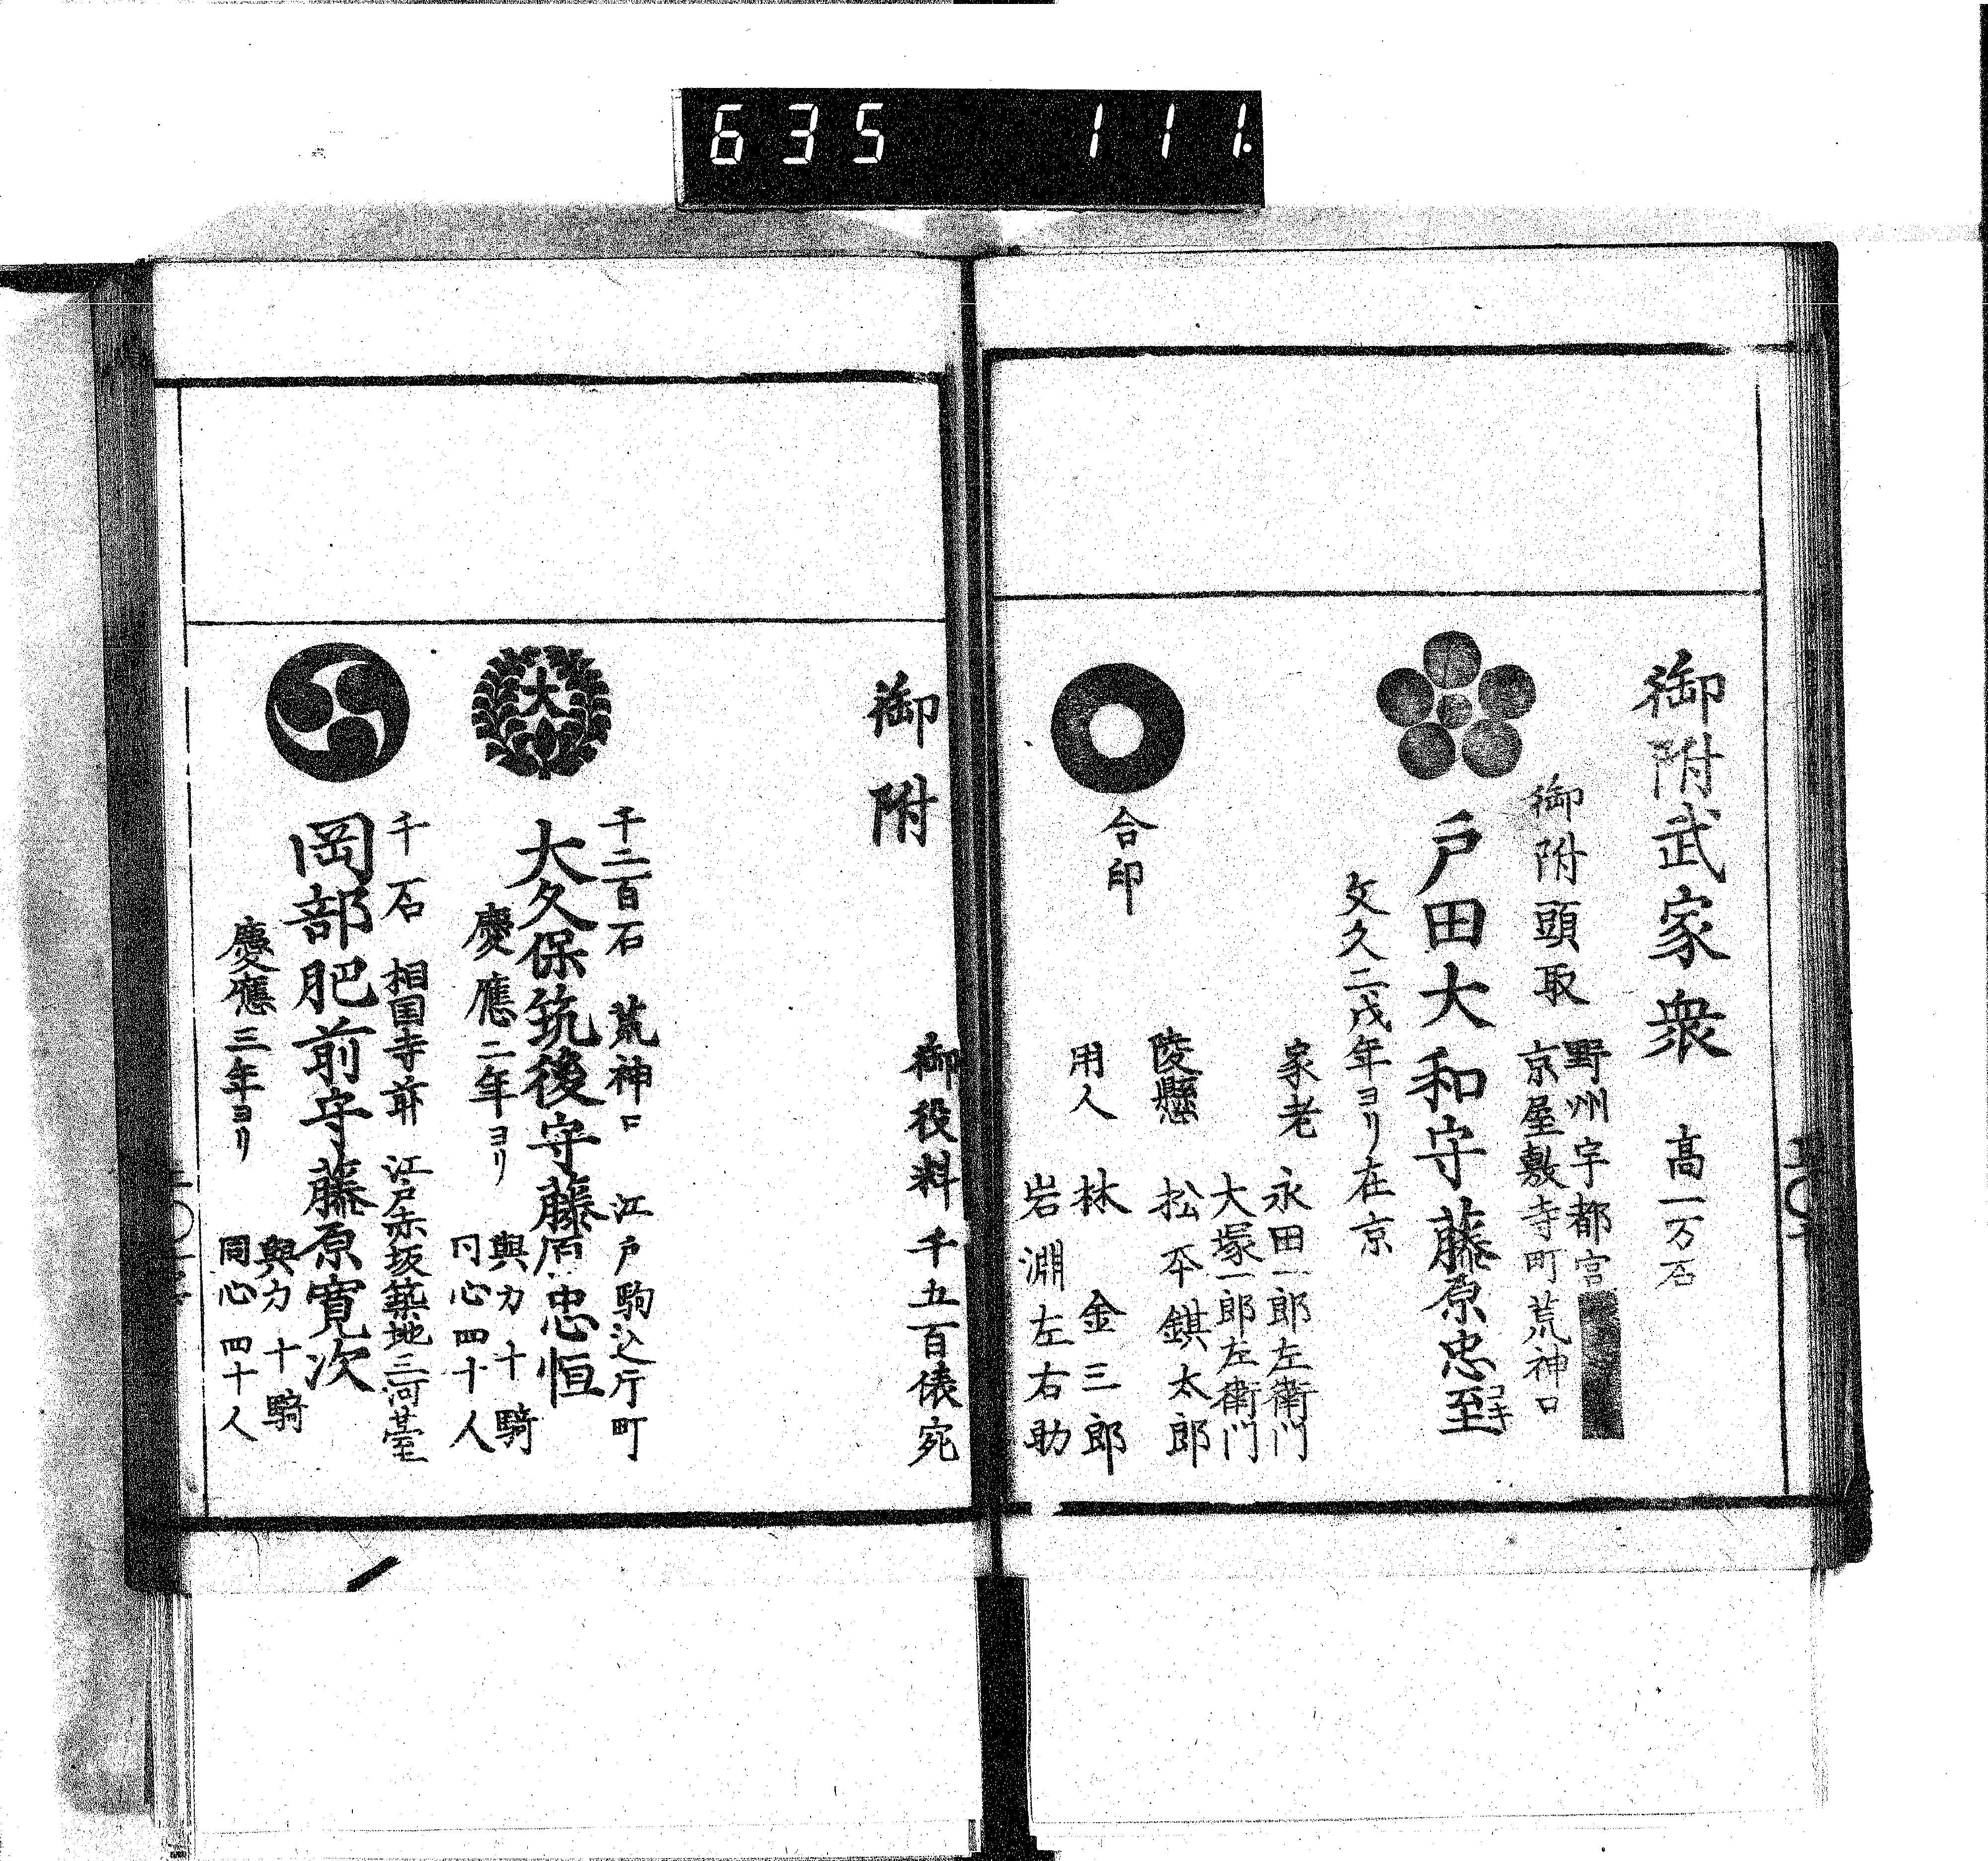 635 111.
御附武家衆 高一万石
御附頭取 野州宇都宮
京屋敷寺町荒神口
戸田大和守藤原忠至
ユキ
文久二戌年ヨリ在京
家老 永田一郎左衛門
大塚一郎左衛門
陵懸 松本錤太郎
合印
用人 林金三郎
岩淵左右助
御附 御役料千五百俵宛
千二百石 荒神口 江戸駒込片町
大
大久保筑後守藤原忠恒
慶應二年ヨリ 與力十騎
同心四十人
千石 相国寺前 江戸赤坂築地三河臺
岡部肥前守藤原寛次
慶應三年ヨリ 與力十騎
同心四十人